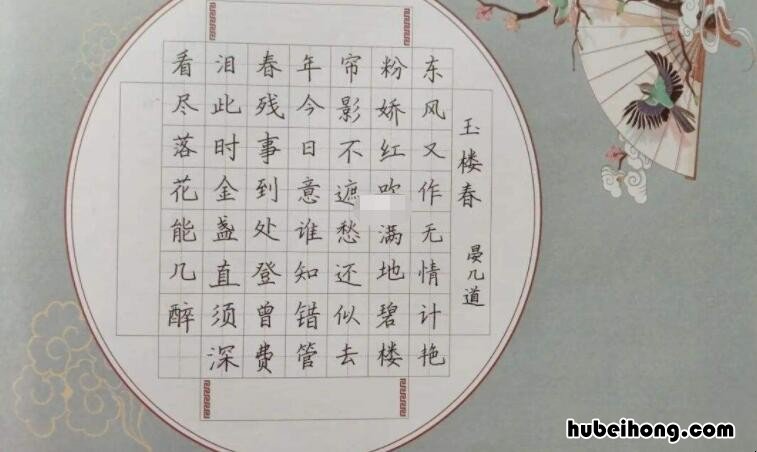 玉楼春
晏几道
东风又作无情计艳
粉娇红吹满地碧楼
帘影不遮愁还似去
年今日意谁知错管
春残事到处登曾费
泪此时金盏直须深
看尽落花能几醉
hubeihong.com